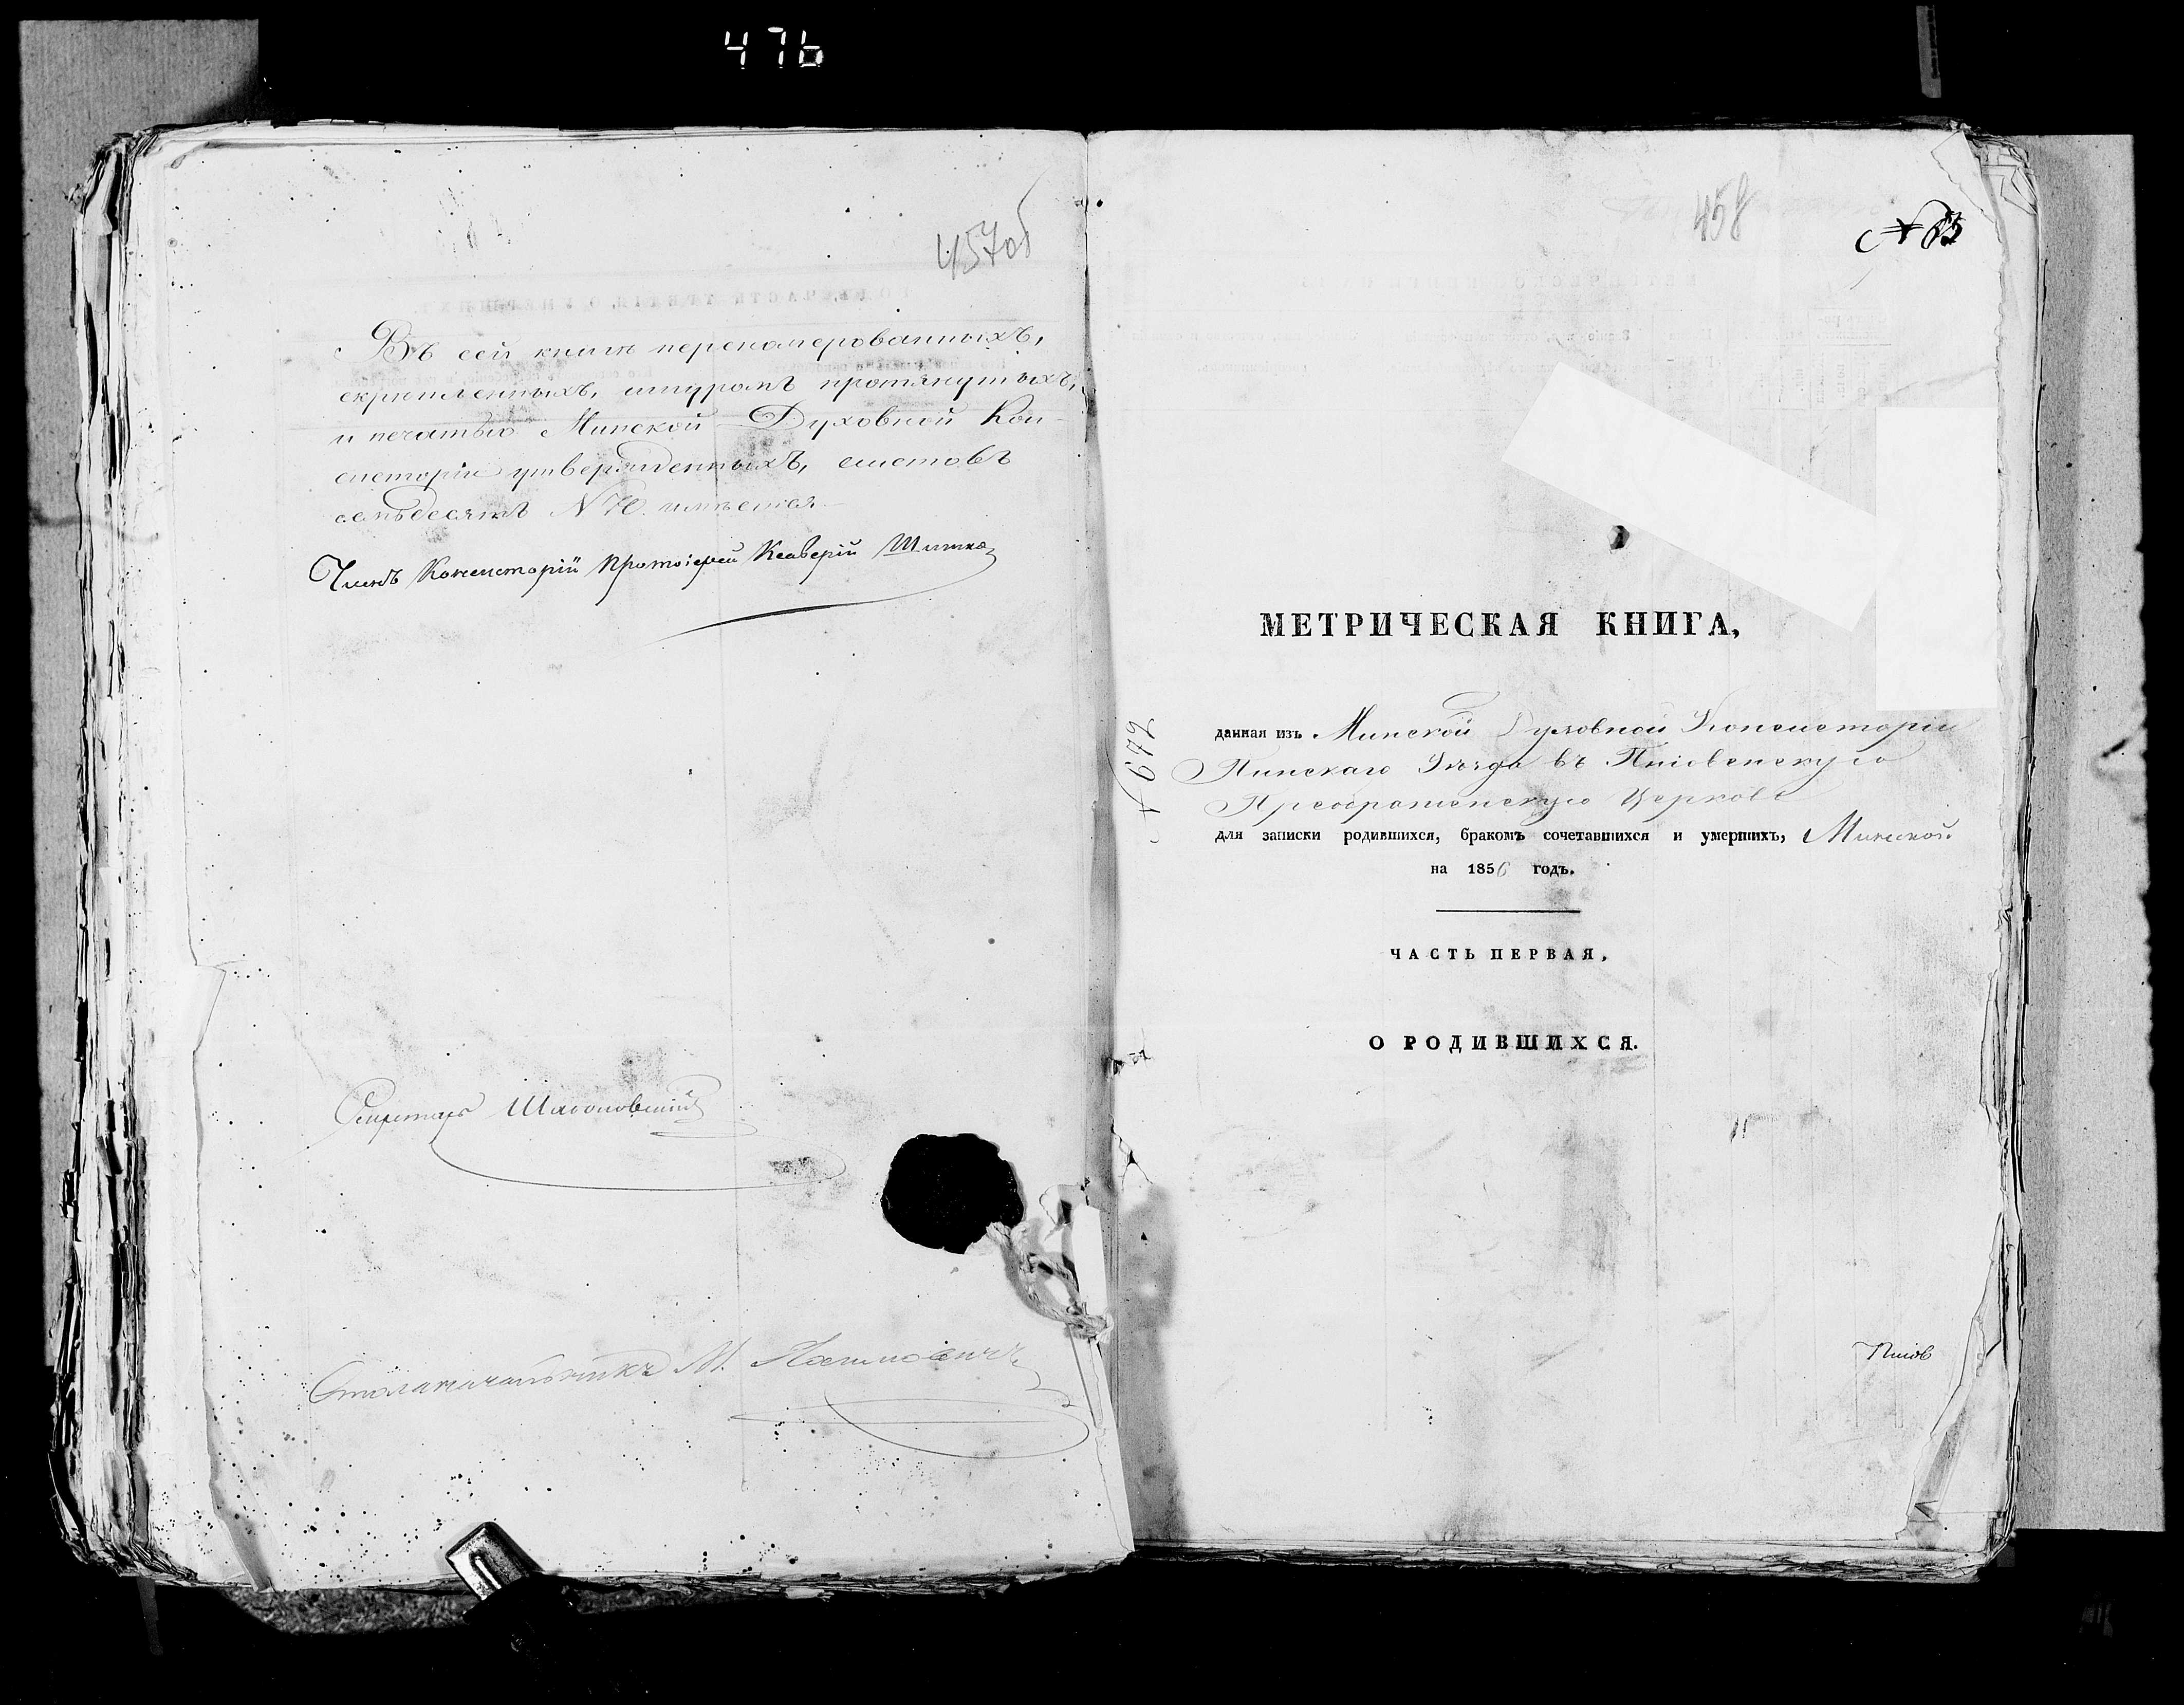 476
457об
Въ сей книгѣ перенумерованныхъ,
скрѣпленныхъ, шнуромъ протянутыхъ,
и печатью Минской Духовной Кон-
систоріи утвержденныхъ, листовъ
семьдесятъ N 70. имѣется
Членъ Консисторіи Протоіерей Ксаверій
Секретарь
Столоначальникъ М.
458
МЕТРИЧЕСКАЯ КНИГА,
данная изъ Минской Духовной Консисторіи
Пинскаго Уѣзда въ Пніовенскую
Преображенскую Церковь
для записки родившихся, бракомъ сочетавшихся и умершихъ, Минской
на 1856 годъ.
ЧАСТЬ ПЕРВАЯ,
О РОДИВШИХСЯ.
N 672
Пніов